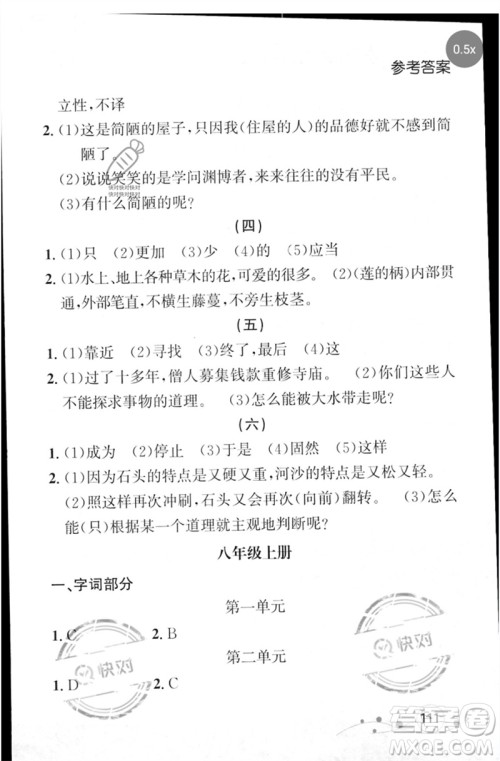 参考答案
0.5x
立性,不译
2. (1)这是简陋的屋子,只因我(住屋的人)的品德好就不感到简
陋了。
(2)说说笑笑的是学问渊博者,来往的没有平民。
(3)有什么简陋的呢?
(四)
1. (1)只 (2)更加 (3)少 (4)的 (5)应当
2. (1)水上、地上各种草木的花,可爱的很多。 (2)(莲的柄)内部贯
通,外部笔直,不横生藤蔓,不旁生枝茎。
(五)
1. (1)靠近 (2)寻找 (3)终了,最后 (4)认为 (5)这
2. (1)过了十多年,僧人募集钱款重修寺庙。 (2)你们这些人
不能探求事物的道理。 (3)怎么能被大水带走呢?
(六)
1. (1)成为 (2)停止 (3)于是 (4)固然 (5)这样
2. (1)因为石头的特点是又硬又重,河沙的特点是又松又轻。
(2)照这样再次冲刷,石头又会再次(向前)翻转。 (3)怎么
能(只)根据某一个道理就主观地判断呢?
八年级上册
一、字词部分
第一单元
1. C 2. B
第二单元
1. D 2. C
快对
快对
答案圈
111